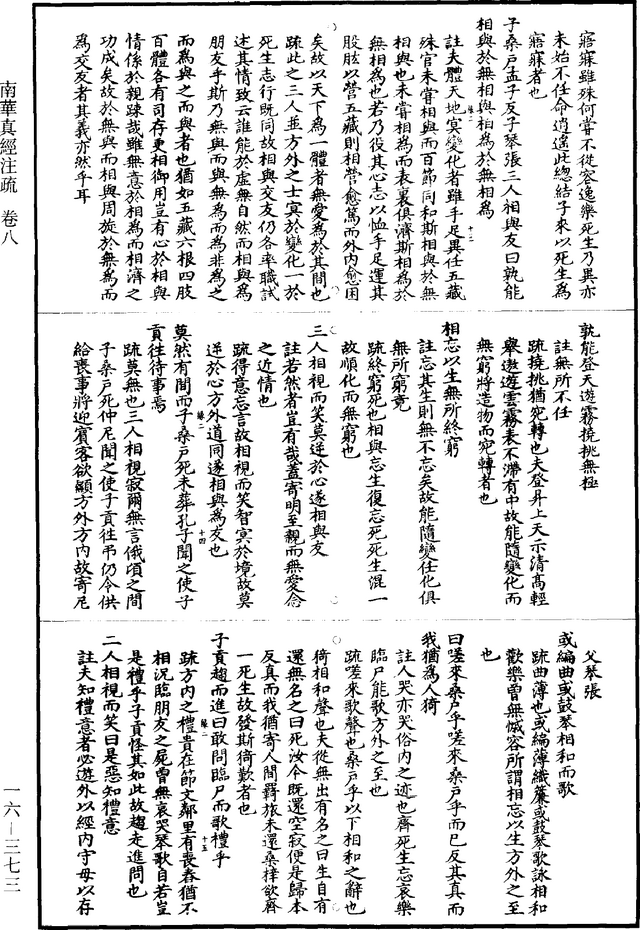 寤寐雖殊何嘗不從容逸樂死生乃異亦
未始不任命逍遙此總結子來以死生為
寤寐者也
子桑戶孟子反子琴張三人相與友曰孰能
相與於無相與相為於無相為
註夫體天地冥變化者雖手足異任五藏
殊官未嘗相與而百節同和斯相與於無
相與也未嘗相為而表裏俱濟斯相為於
無相為也若乃役其心志以恤手足運其
股肱以營五藏則相營愈篤而外內愈困
矣故以天下為一體者無愛為於其間也
疏此之三人並方外之士冥於變化一於
死生志行既同故相與交友仍各率職試
述其情致云誰能於虛無自然而相與為
朋友乎斯乃無與而與無為而為非為之
而為與之而與者也猶如五藏六根四肢
百體各有司存更相御用豈有心於相與
情係於親踈哉雖無意於相為而相濟之
功成矣故於無與而相與周旋於無為而
為交友者其義亦然乎耳
孰能登天遊霧撓挑無極
註無所不任
疏撓挑猶宛轉也夫登昇上天示清高輕
舉遨遊雲霧表不滯有中故能隨變化而
無窮將造物而宛轉者也
相忘以生無所終窮
註忘其生則無不忘矣故能隨變任化俱
無所窮竟
疏終窮死也相與忘生復忘死死生混一
故順化而無窮也
三人相視而笑莫逆於心遂相與友
註若然者豈有哉蓋寄明至親而無愛念
之近情也
疏得意忘言故相視而笑智冥於境故莫
逆於心方外道同遂相與為友也
莫然有間而子桑戶死未葬孔子聞之使子
貢往待事焉
疏莫無也三人相視寂爾無言俄頃之間
子桑戶死仲尼聞之使子貢往弔仍令供
給喪事將迎賓客欲顯方外方內故寄尼
父琴張
或編曲或鼓琴相和而歌
疏曲薄也或編薄織簾或鼓琴歌詠相和
歡樂曾無慽容所謂相忘以生方外之至
也
曰嗟來桑戶乎嗟來桑戶乎而已反其真而
我猶為人猗
註人哭亦哭俗內之迹也齊死生忘哀樂
臨尸能歌方外之至也
疏嗟來歌聲也桑戶乎以下相和之辭也
猗相和聲也夫從無出有名之曰生自有
還無名之曰死汝今既還空寂便是歸本
反真而我猶寄人間羇旅未還桑梓欲齊
一死生故發斯猗歎者也
子貢趨而進曰敢問臨尸而歌禮乎
疏方內之禮貴在節文鄰里有喪舂猶不
相況臨朋友之死曾無哀哭琴歌自若豈
是禮乎子貢怪其如此故趨走進問也
二人相視而笑曰是惡知禮意
註夫知禮意者必遊外以經內守母以存
南華真經注疏 卷八
一六-三七三